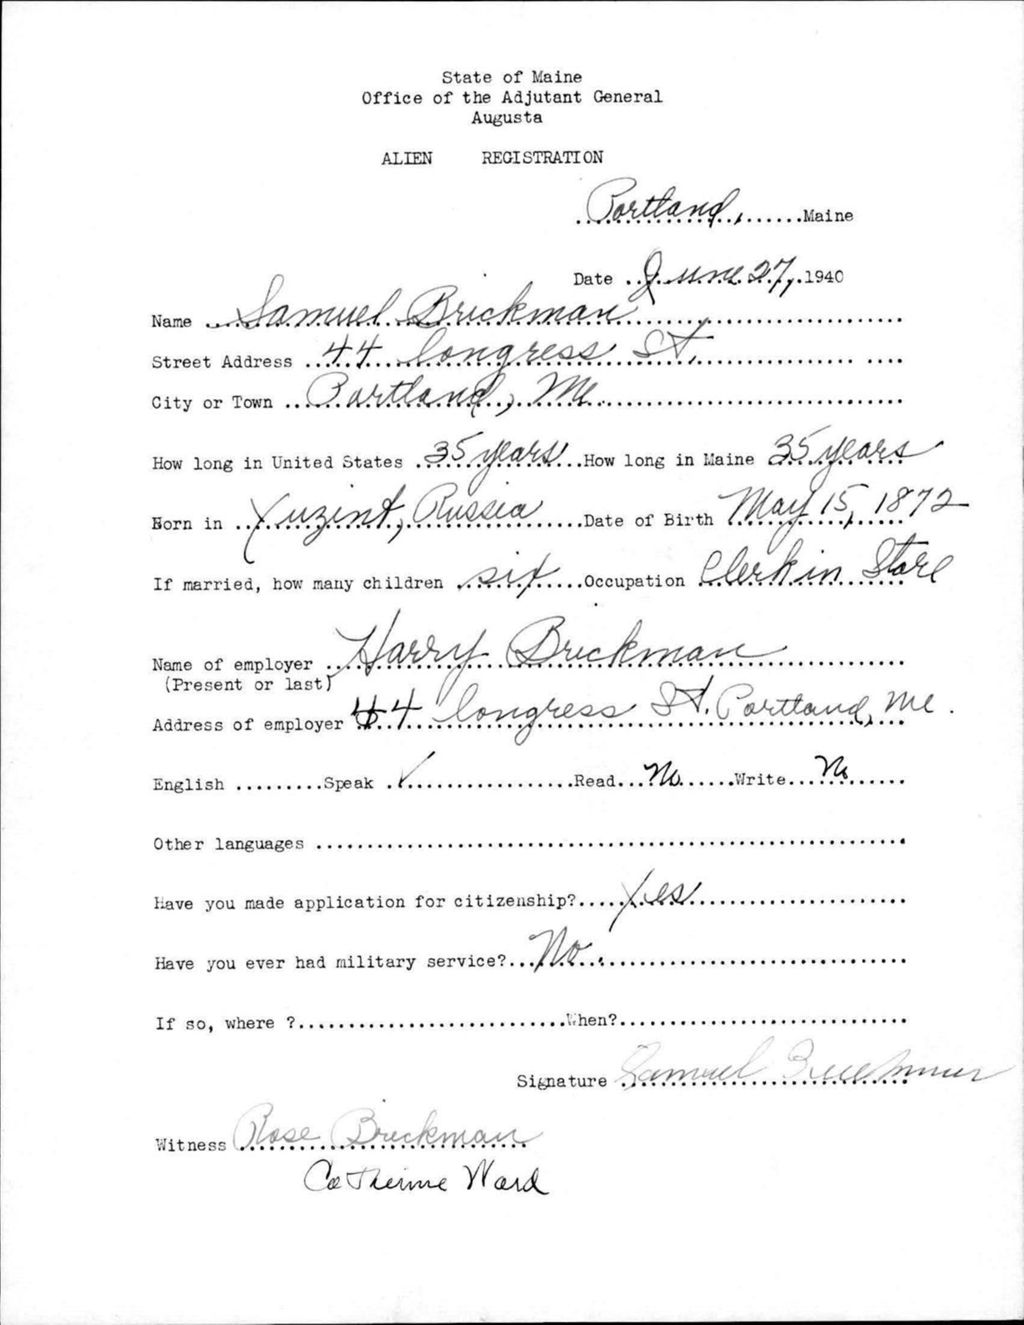 State of Maine
Office of the Adjutant General
Augusta
ALIEN REGISTRATION
Portland, Maine
Date June 27, 1940
Name Samuel Brickman
Street Address 44 Congress St.
City or Town Portland, Me.
How long in United States 35 years How long in Maine 35 years
Born in Russia Date of Birth May 15, 1872
If married, how many children six Occupation Clerk in Store
Name of employer Harry Brickman
(Present or last)
Address of employer 44 Congress St. Portland, Me.
English Speak ✓ Read No Write No
Other languages
Have you made application for citizenship? Yes
Have you ever had military service? No.
If so, where ? When?
Signature Samuel
Witness Rose Brickman
Catherine Ward